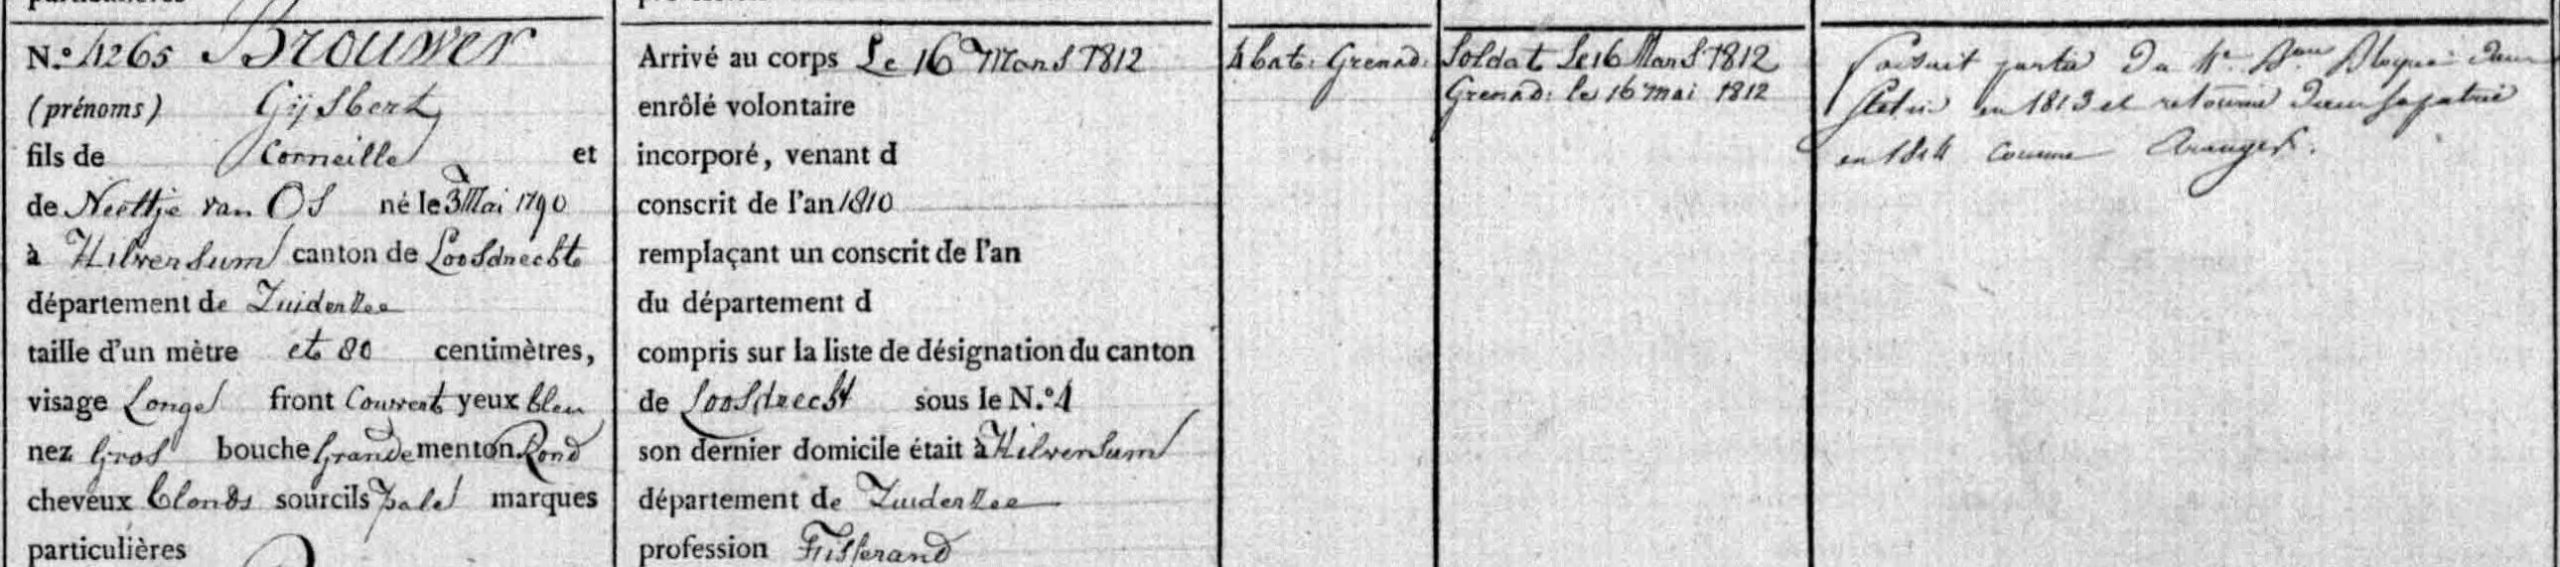 N.º 4265 Brouwer
(prénoms) Gijsbert
fils de Corneille et
de Neeltje van Os né le 3 Mai 1790
à Hilversum canton de Loosdrecht
département de Zuiderzee
taille d'un mètre et 80 centimètres,
visage Longe front Couvert yeux bleu
nez Gros bouche Grande menton Rond
cheveux blonds sourcils pale marques
particulières
Arrivé au corps Le 16 Mars 1812
enrôlé volontaire
incorporé, venant d
conscrit de l'an 1810
remplaçant un conscrit de l'an
du département d
compris sur la liste de désignation du canton
de Loosdrecht sous le N.º 4
son dernier domicile était à Hilversum
département de Zuiderzee
profession Tisserand
4 bat: Grenad:
Soldat Le 16 Mars 1812
Grenad: le 16 mai 1812
faisait partie du 4e Bon Bloqué dans
Stetin en 1813 et retourné dans sa patrie
en 1814 comme étranger.